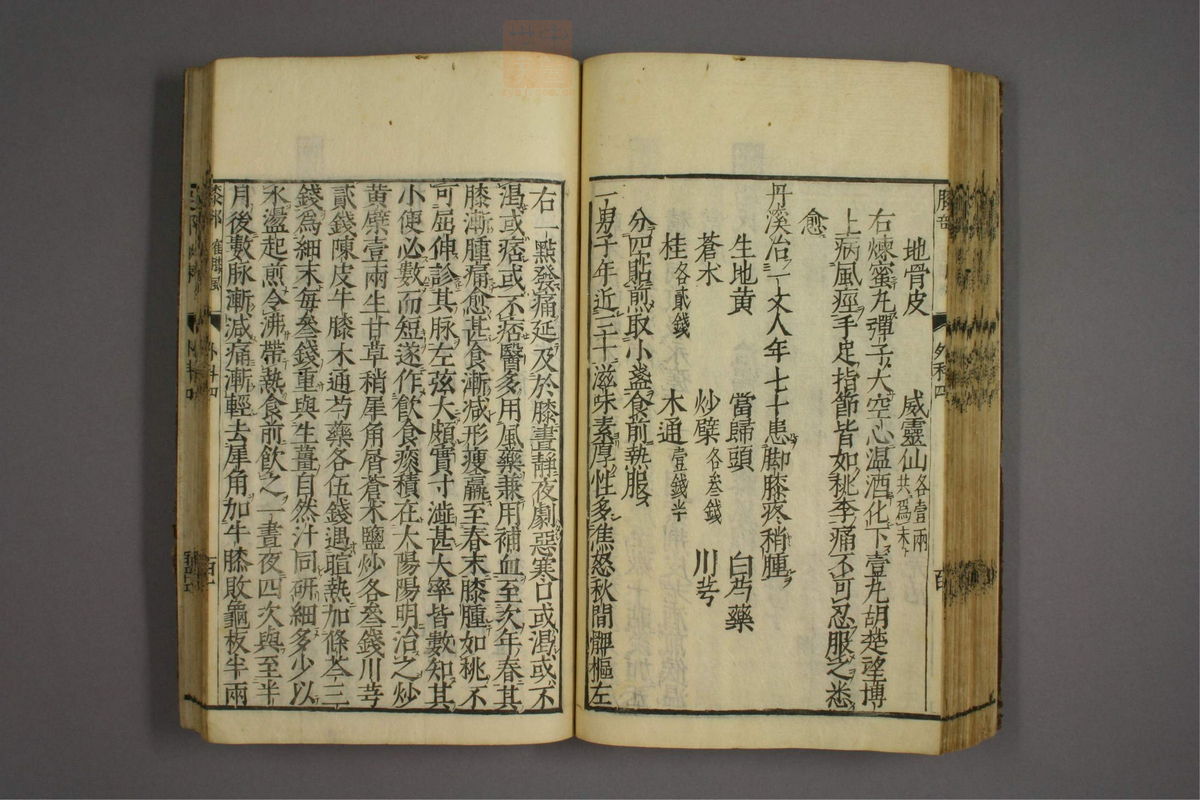 膝部
外科四
百
地骨皮 威靈仙各壹兩共爲末
右煉蜜丸彈子大空心温酒化下壹丸胡楚望博
上病風痙手足指節皆如桃李痛不可忍服之悉
愈
丹溪治一丈人年七十患脚膝疼稍腫
生地黄 當歸頭 白芍藥
蒼朮 炒蘗各叁錢 川芎
桂各貳錢 木通壹錢半
分四貼煎取小盞食前熱服
一男子年近三十滋味素厚性多焦怒秋間髀樞左
右一點發痛延及於膝晝靜夜劇惡寒口或渴或不
渴或痞或不痞醫多用風藥兼用補血至次年春其
膝漸腫痛愈甚食漸减形瘦羸至春末膝腫如桃不
可屈伸診其脉左弦大頗實寸澁甚大率皆數知其
小便必數而短遂作飲食痰積在太陽陽明治之炒
黄蘗壹兩生甘草稍犀角屑蒼朮鹽炒各叁錢川芎
貳錢陳皮牛膝木通芍藥各伍錢遇暄熱加條芩三
錢爲細末每叁錢重與生薑自然汁同研細多少以
水盪起煎令沸帶熱食前飲之一晝夜四次與至半
月後數脉漸减痛漸輕去犀角加牛膝敗龜板半兩
膝部
鶴膝風
外科四
百一